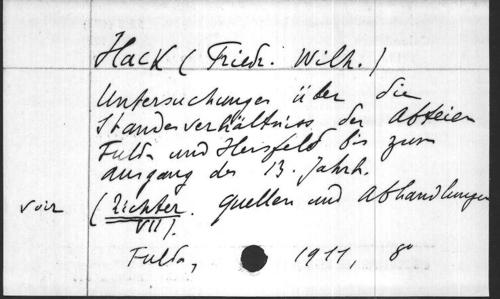 Hack (Friedr. Wilh.)
Untersuchungen über die
Standesverhältniss der Abteien
Fulda und Hersfeld bis zum
Ausgang des 13. Jahrh.
voir (Richter. Quellen und Abhandlungen
VII).
Fulda, 1911, 8°